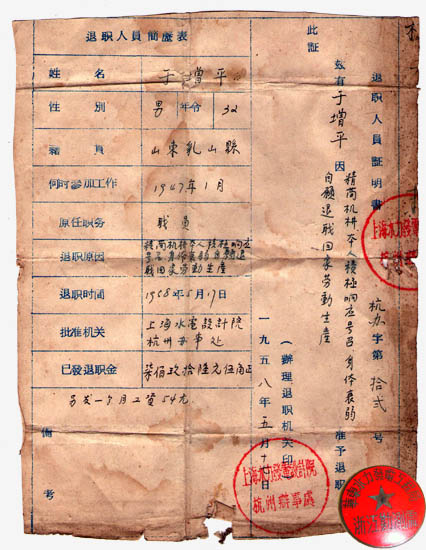 退职人员証明書 杭办字第拾弍号
兹有于增平因精简机构本人積極响应号召身体衰弱 准予退职
自願退職回家劳動生產
此証
(辦理退职机关印)
一九五八年五月十七日
上海水力發電設計院
杭州辦事處
退职人員簡歷表
姓名 于增平
性别 男 年令 32
籍貫 山東乳山縣
何时參加工作 1947年1月
原任职务 職員
退职原因 精简机构本人積極响应
号召身体衰弱自願退
職回家劳動生產
退职时間 1958年5月17日
批准机关 上海水電設計院
杭州办事处
已發退职金 柒佰玖拾陸元伍角正
另发一个月工资54元
備考